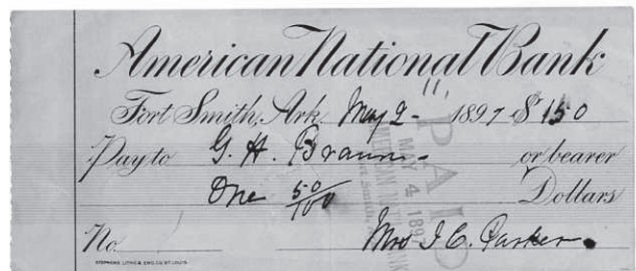 American National Bank
Fort Smith, Ark. May 2 - 1897 $ 150
Pay to G. H. Braun - or bearer
One 50/100 Dollars
No. Mrs I. C. Parker.
PAID
MAY 4 189
AMERICAN NATL BANK
Ft. Smith,
STEPHENS LITHO & ENG. CO. ST. LOUIS.